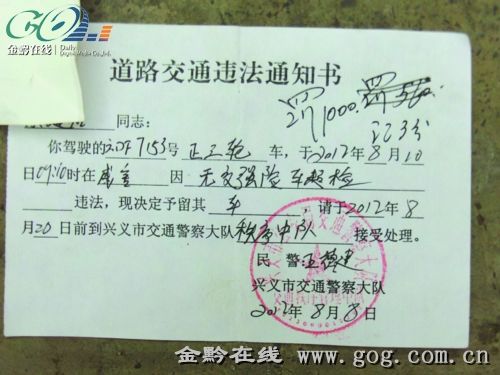 GO
Daily
金黔在线
道路交通违法通知书
罚1000. 罚
记3分
同志：
你驾驶的EDF7153号 正三轮 车，于2012年8月10
日09:10时在 因 无交强险 车超检
违法，现决定予留其 车 ，请于2012年8
月20日前到兴义市交通警察大队 秩序中队 接受处理。
民 警：王
兴义市交通警察大队
2012年8月8日
金黔在线 www.gog.com.cn